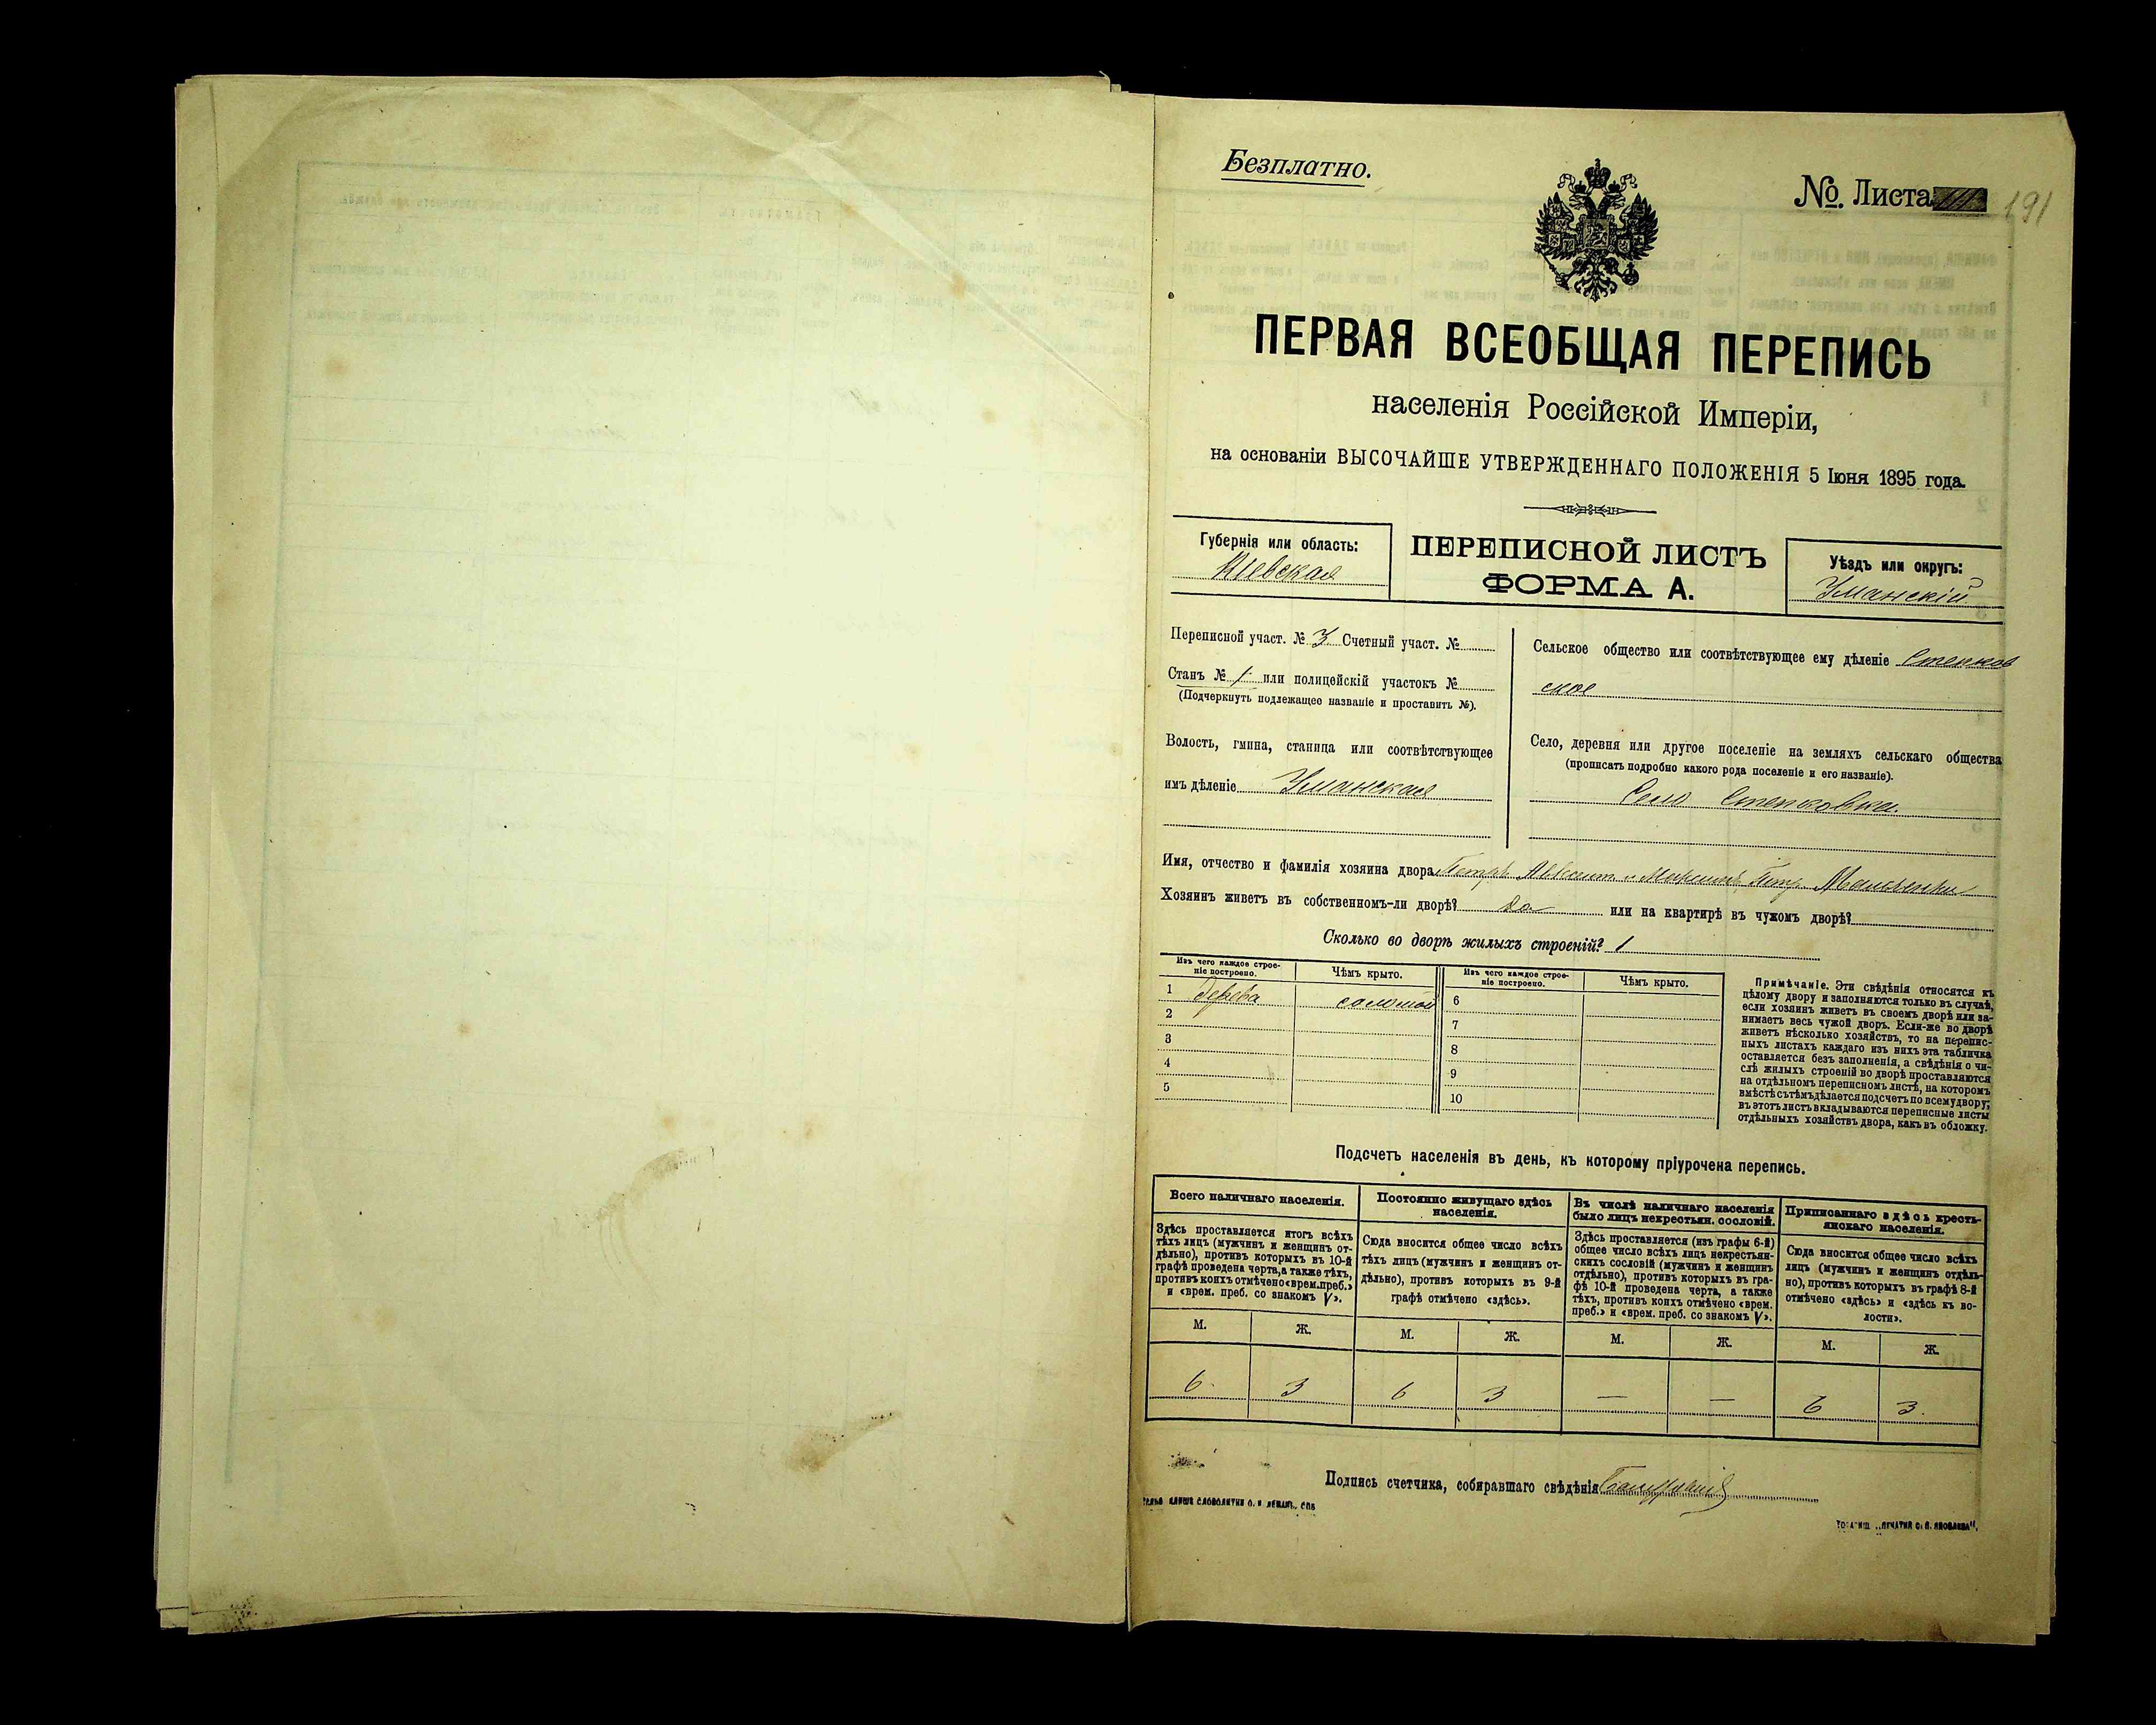 Безплатно.
№. Листа 191
ПЕРВАЯ ВСЕОБЩАЯ ПЕРЕПИСЬ
населенія Россійской Имперіи,
на основаніи ВЫСОЧАЙШЕ УТВЕРЖДЕННАГО ПОЛОЖЕНІЯ 5 Іюня 1895 года.
Губернія или область:
Кіевская
ПЕРЕПИСНОЙ ЛИСТЪ
ФОРМА А.
Уѣздъ или округъ:
Уманскій
Переписной участ. № 3 Счетный участ. №
Станъ № 1 или полицейскій участокъ №
(Подчеркнуть подлежащее названіе и проставить №).
Волость, гмина, станица или соотвѣтствующее
имъ дѣленіе Уманская
Сельское общество или соотвѣтствующее ему дѣленіе Степков
ское
Село, деревня или другое поселеніе на земляхъ сельскаго общества
(прописать подробно какого рода поселеніе и его названіе).
Село Степковка.
Имя, отчество и фамилія хозяина двора Петръ
Хозяинъ живетъ въ собственномъ-ли дворѣ? да или на квартирѣ въ чужомъ дворѣ?
Сколько во дворѣ жилыхъ строеній? 1
Изъ чего каждое строе-
ніе построено.
Чѣмъ крыто.
Изъ чего каждое строе-
ніе построено.
Чѣмъ крыто.
1 дерева соломой 6
2 7
3 8
4 9
5 10
Примѣчаніе. Эти свѣдѣнія относятся къ
цѣлому двору и заполняются только въ случаѣ,
если хозяинъ живетъ въ своемъ дворѣ или за-
нимаетъ весь чужой дворъ. Если-же во дворѣ
живетъ нѣсколько хозяйствъ, то на перепис-
ныхъ листахъ каждаго изъ нихъ эта табличка
оставляется безъ заполненія, а свѣдѣнія о чи-
слѣ жилыхъ строеній во дворѣ проставляются
на отдѣльномъ переписномъ листѣ, на которомъ
вмѣстѣ съ тѣмъ дѣлается подсчетъ по всему двору;
въ этотъ листъ вкладываются переписные листы
отдѣльныхъ хозяйствъ двора, какъ въ обложку.
Подсчетъ населенія въ день, къ которому пріурочена перепись.
Всего наличнаго населенія.
Здѣсь проставляется итогъ всѣхъ
тѣхъ лицъ (мужчинъ и женщинъ от-
дѣльно), противъ которыхъ въ 10-й
графѣ проведена черта, а также тѣхъ,
противъ коихъ отмѣчено «врем. преб.»
и «врем. преб. со знакомъ V».
Постоянно живущаго здѣсь
населенія.
Сюда вносится общее число всѣхъ
тѣхъ лицъ (мужчинъ и женщинъ от-
дѣльно), противъ которыхъ въ 9-й
графѣ отмѣчено «здѣсь».
Въ числѣ наличнаго населенія
было лицъ некрестьян. сословій.
Здѣсь проставляется (изъ графы 6-й)
общее число всѣхъ лицъ некрестьян-
скихъ сословій (мужчинъ и женщинъ
отдѣльно), противъ которыхъ въ гра-
фѣ 10-й проведена черта, а также
тѣхъ, противъ коихъ отмѣчено «врем.
преб.» и «врем. преб. со знакомъ V».
Приписаннаго здѣсь кресть-
янскаго населенія.
Сюда вносится общее число всѣхъ
лицъ (мужчинъ и женщинъ отдѣль-
но), противъ которыхъ въ графѣ 8-й
отмѣчено «здѣсь» и «здѣсь къ во-
лости».
М. Ж. М. Ж. М. Ж. М. Ж.
6 3 6 3 — — 6 3
Подпись счетчика, собиравшаго свѣдѣнія